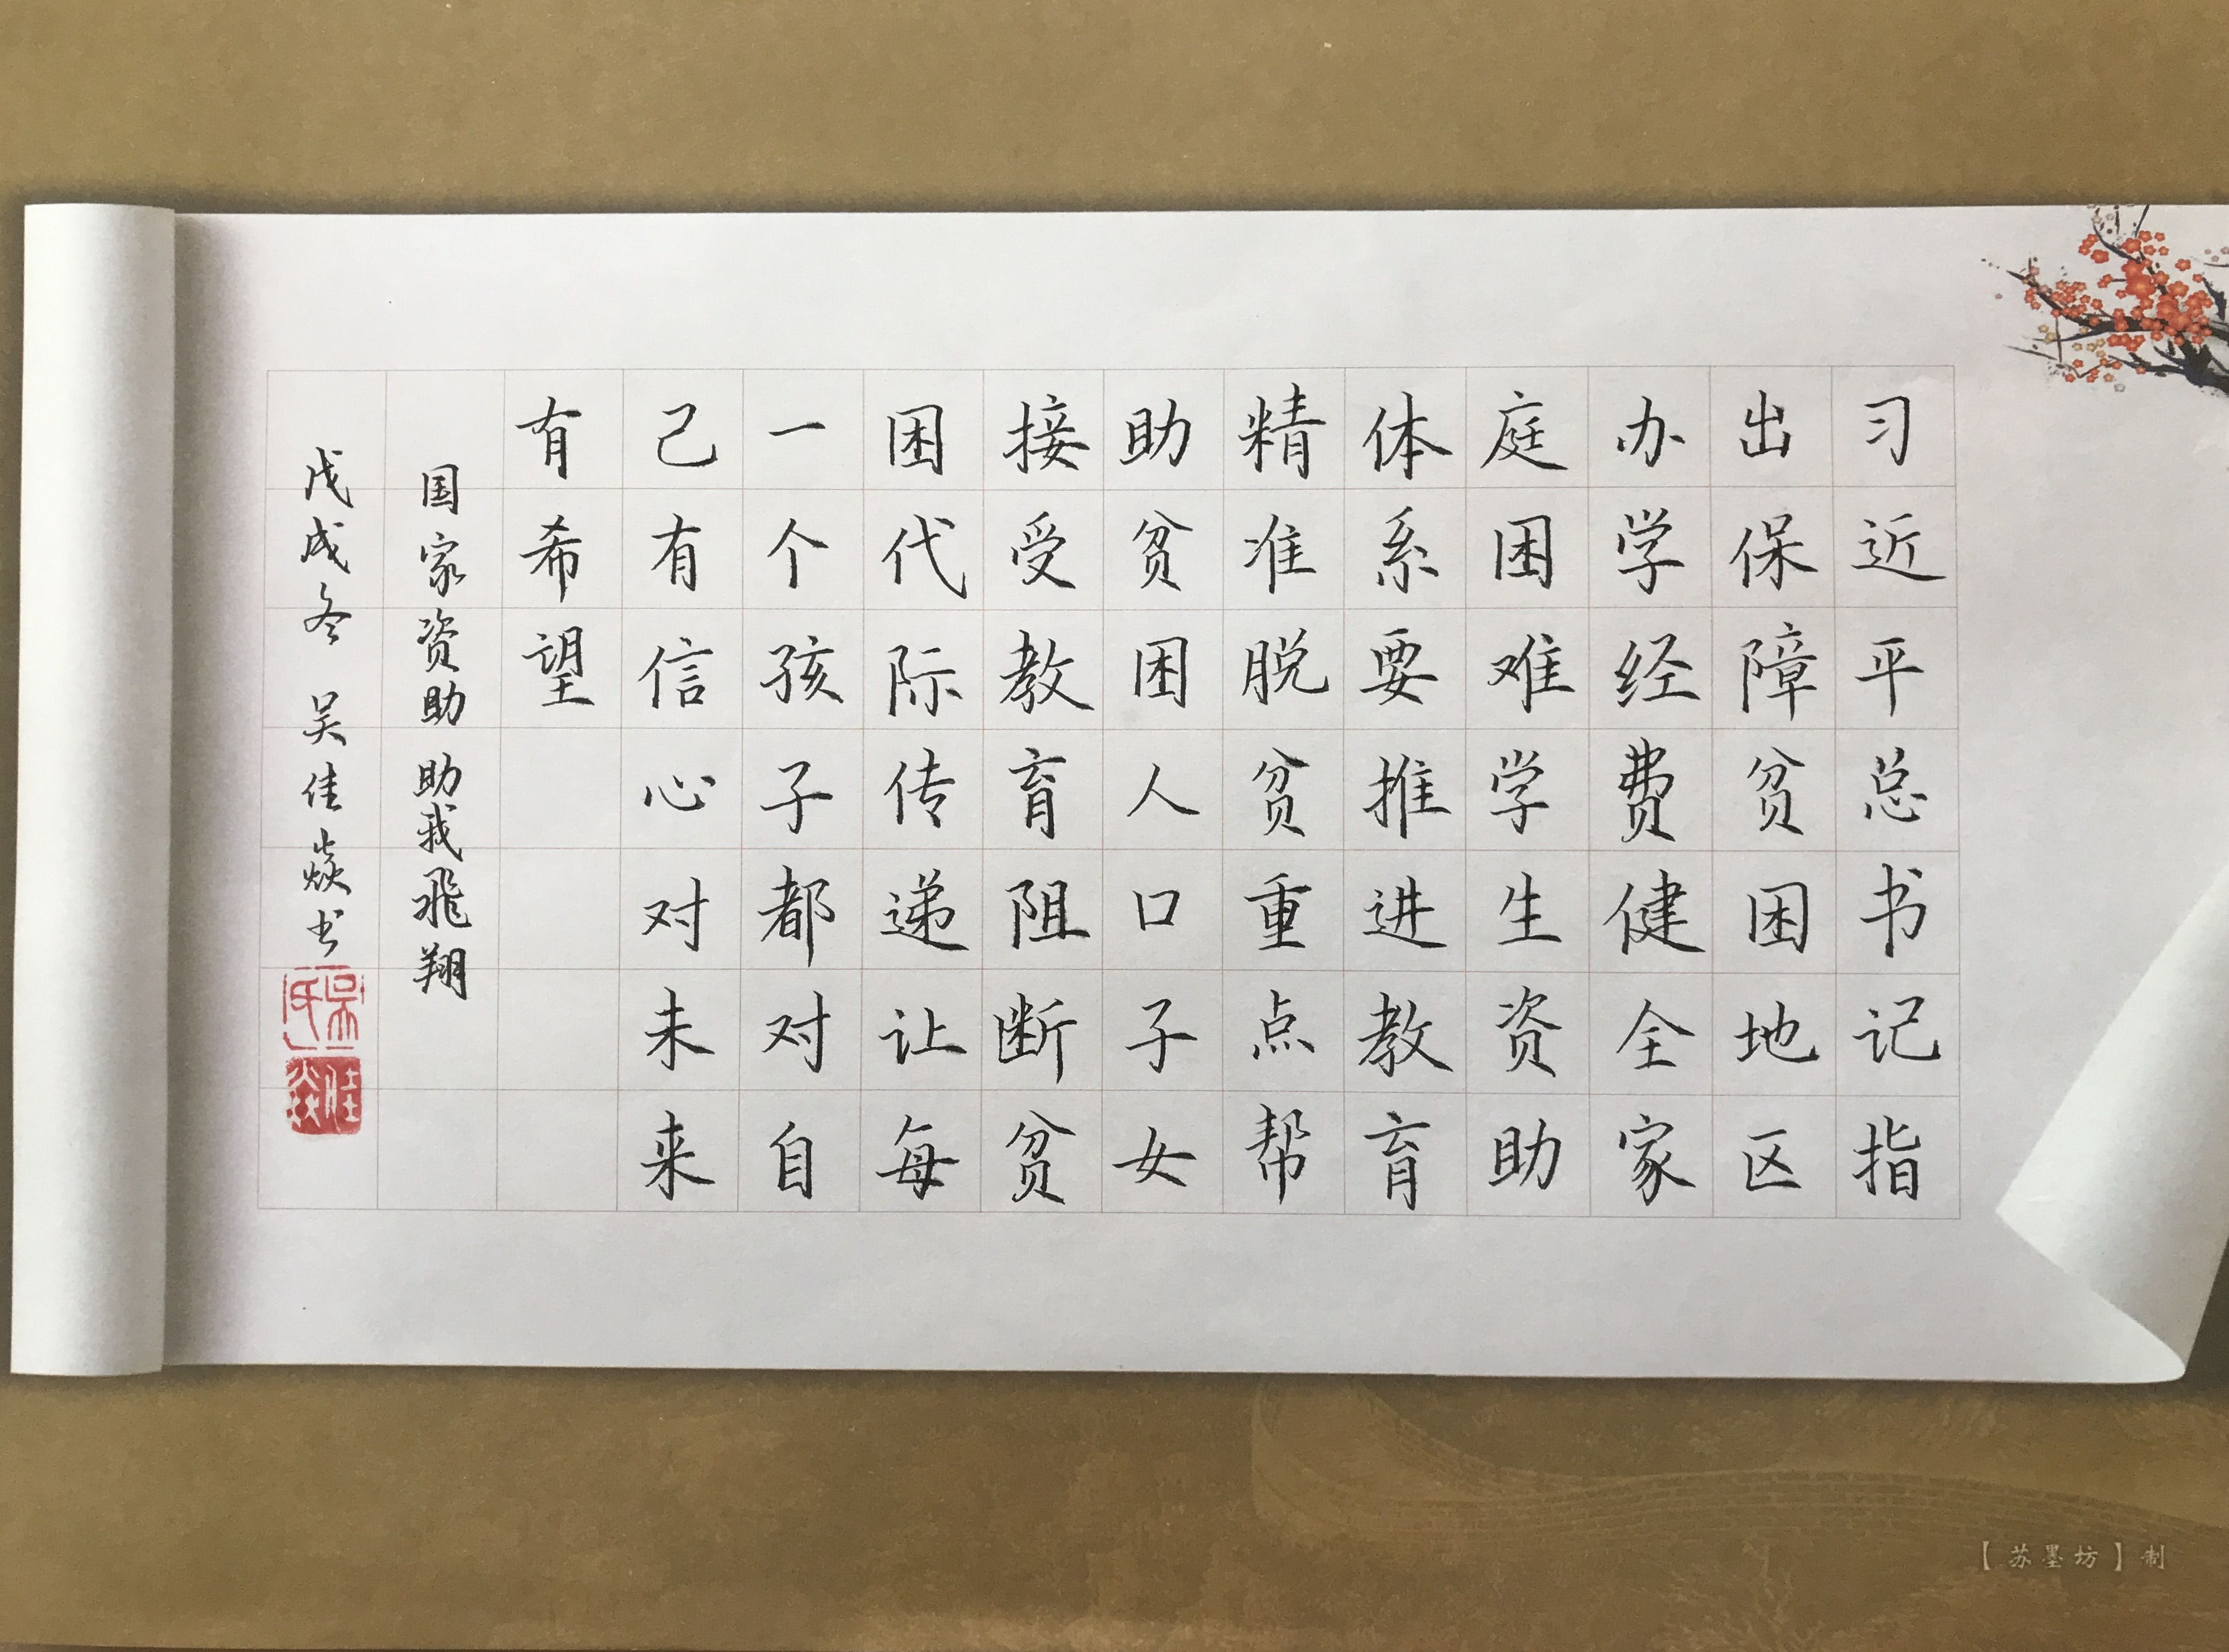 习近平总书记指
出保障贫困地区
办学经费健全家
庭困难学生资助
体系要推进教育
精准脱贫重点帮
助贫困人口子女
接受教育阻断贫
困代际传递让每
一个孩子都对自
己有信心对未来
有希望
国家资助助我飞翔
戊戌冬 吴佳焱书
吴氏
佳焱
【苏墨坊】制